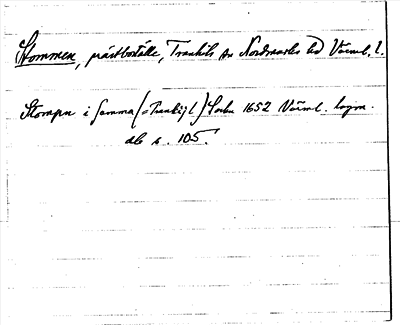 Stommen, prästboställe, Trankils sn Nordmarks hd Värml. l.
Stompn i samma (= Trankijl) Sochn 1652 Värml. lagm.
db s. 105.